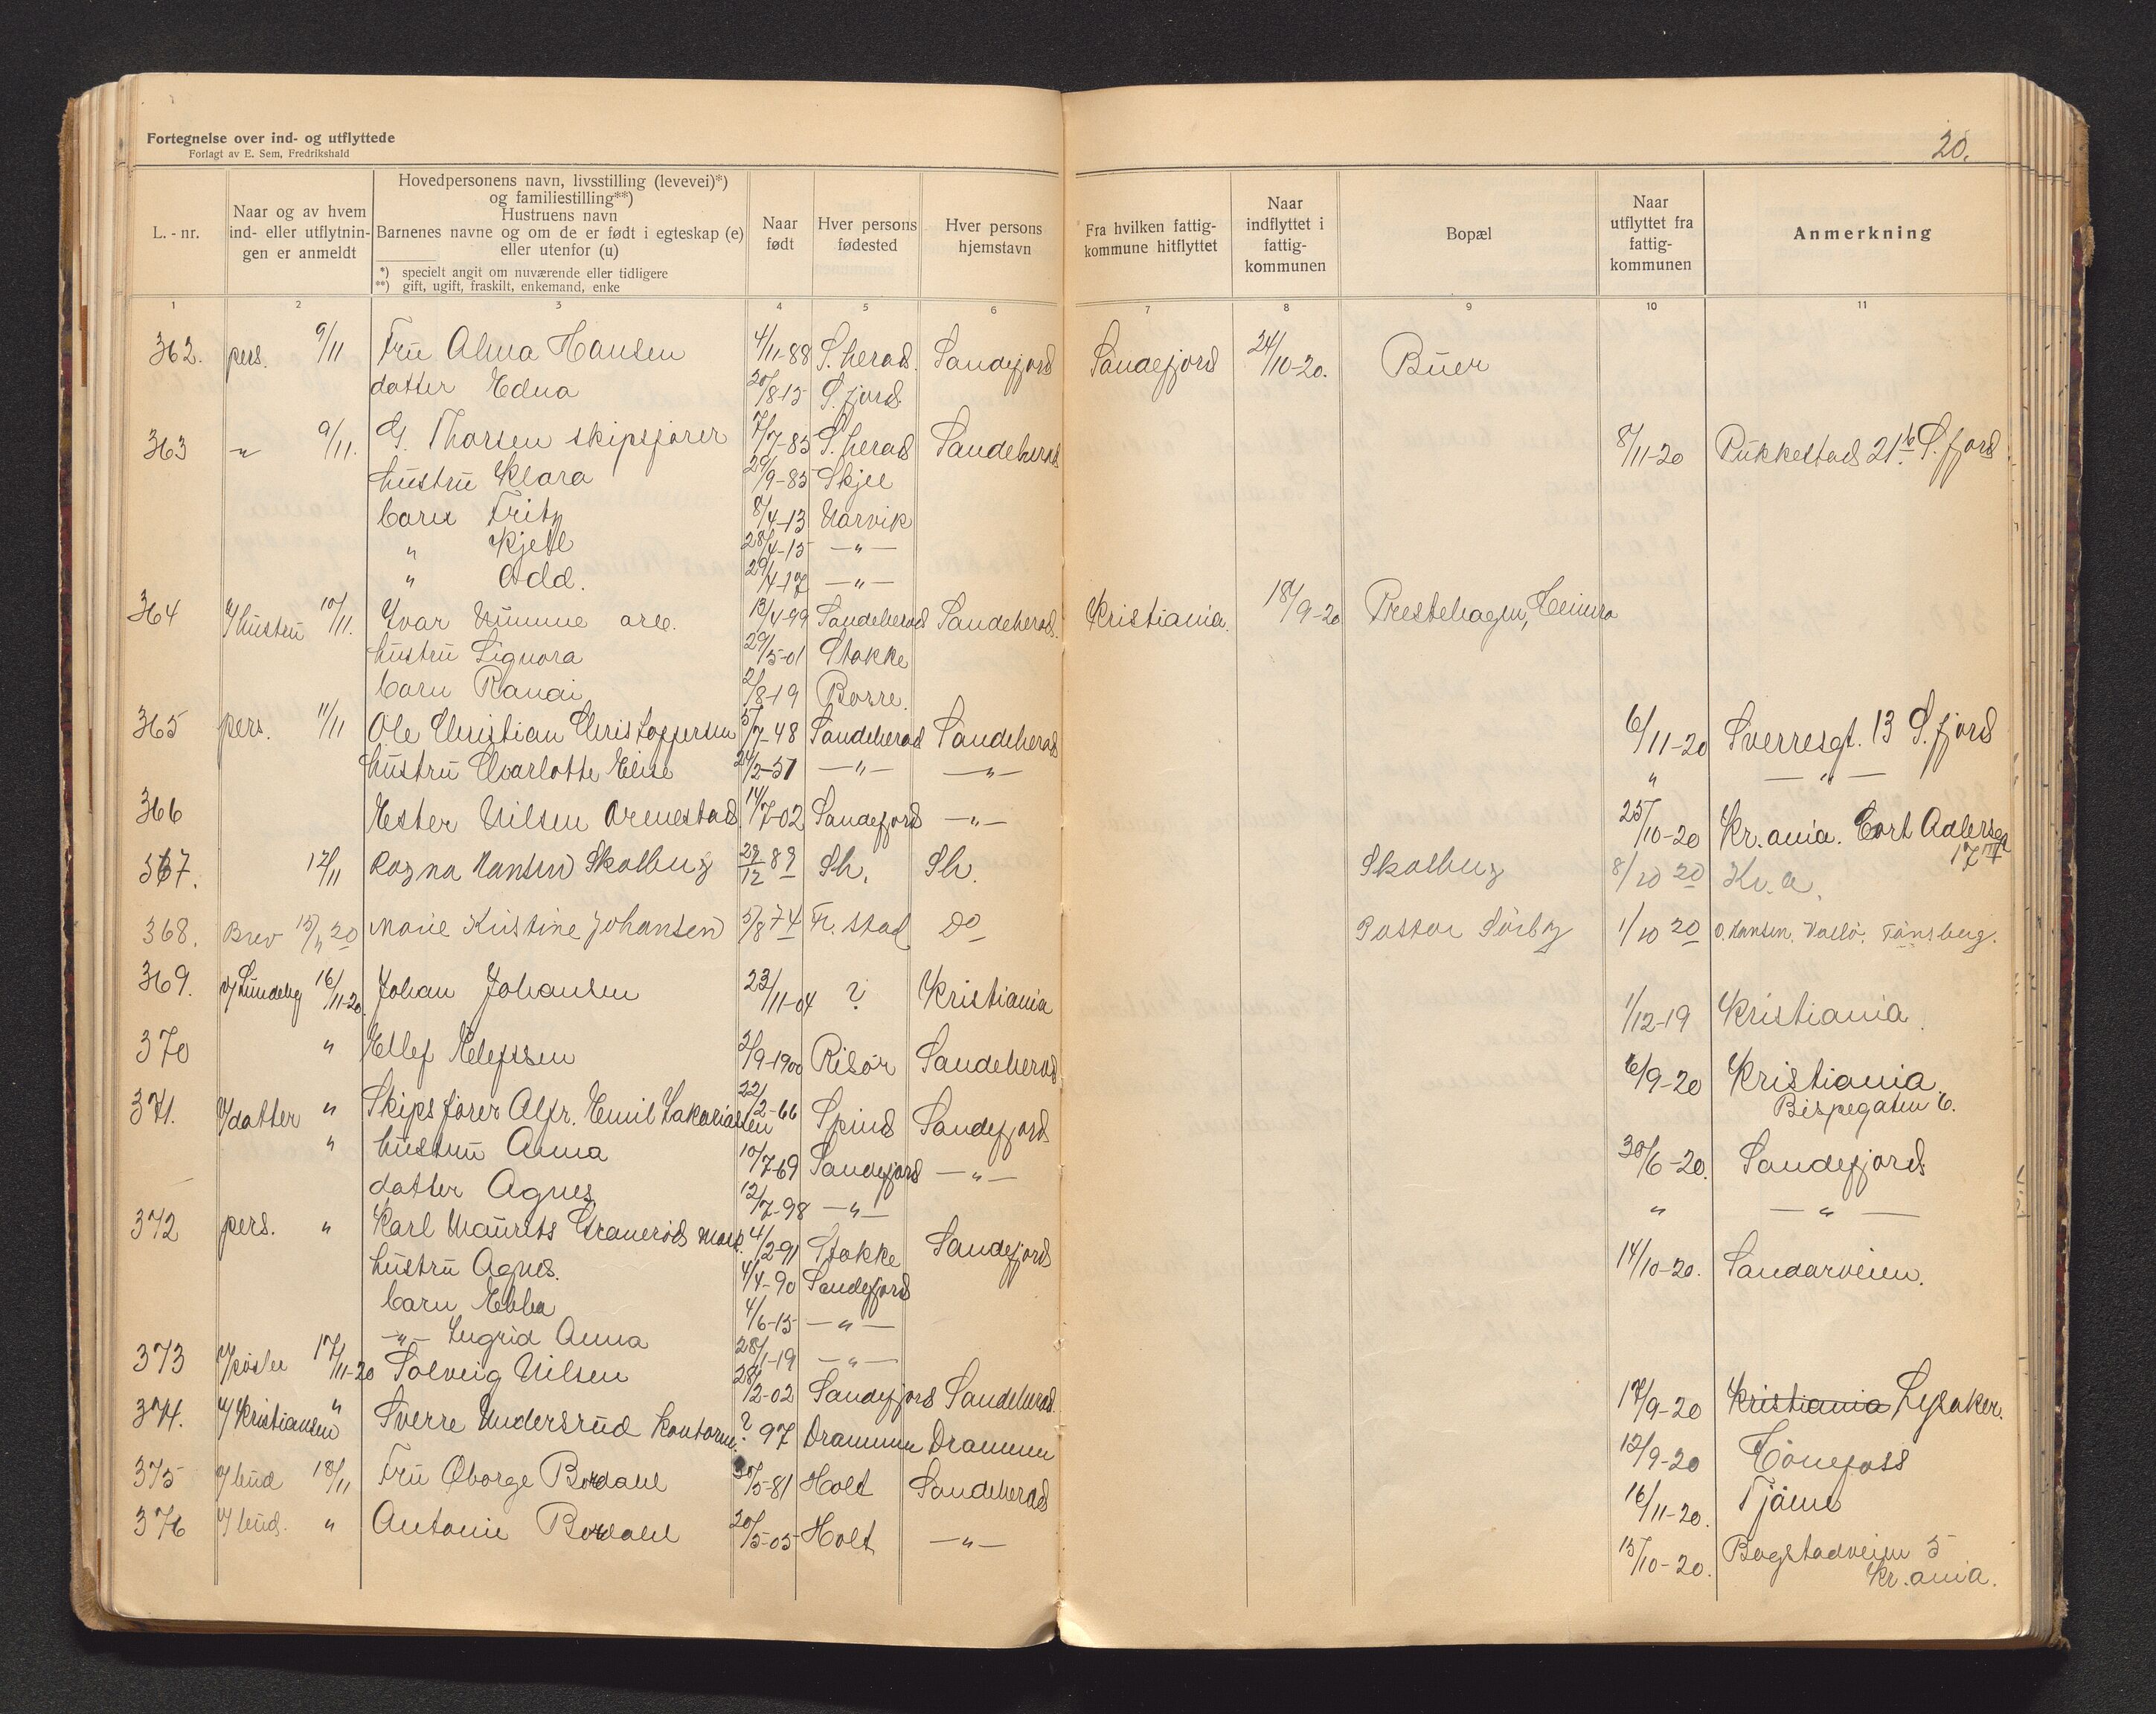 Fortegnelse over ind- og utflyttede
Forlagt av E. Sem, Fredrikshald
20.
L. - nr.
Naar og av hvem ind- eller utflytningen er anmeldt
Hovedpersonens navn, livsstilling (levevei)*)
og familiestilling**)
Hustruens navn
Barnenes navne og om de er født i egteskap (e)
eller utenfor (u)
*) specielt angit om nuværende eller tidligere
**) gift, ugift, fraskilt, enkemand, enke
Naar født
Hver persons fødested
Hver persons hjemstavn
Fra hvilken fattig-kommune hitflyttet
Naar indflyttet i fattig-kommunen
Bopæl
Naar utflyttet fra fattig-kommunen
Anmerkning
1 2 3 4 5 6 7 8 9 10 11
362. pers. 9/11 Fru Alma Hansen 4/11-88 S.herad. Sandefjord Sandefjord 24/10-20. Buer
datter Edna 20/8-15 S.fjord
363 " 9/11. G. Thorsen skipsfører 7/7-83 S.herad Sandeherad 8/11-20 Pukkestad 21b S.fjord
hustru Klara 29/9-83 Skjee
barn Fritz 8/4-13 Narvik
" Kjell 28/4-15 —"—
" Odd. 29/4-17 —"—
364 v/hustru 10/11. Yvar Numme arb. 13/4-99 Sandeherad Sandeherad. Kristiania. 18/9-20 Prestehagen,
hustru Signora 29/5-01 Stokke
barn Randi 2/8-19 Borre.
365 pers. 11/11 Ole Christian Christoffersen 5/7-48 Sandeherad Sandeherad 6/11-20 Sverresgt. 13 S.fjord
hustru Charlotte Elise 24/2-51 —"— —"— " —"—
366 Ester Nilsen Ormestad 14/7-02 Sandefjord —"— 25/10-20 Kr.ania. Cort Adlersgt
17 IV
367. 12/11 Ragna Hansen Skolbug 29/12 89 Sh. Sh. Skolbug 8/10 20 Kr.a.
368. Brev 15/11 20 Marie Kristine Johansen 5/8 74 Fr.stad Do Pastor Sørby 1/10 20 O. Hansen, Vallø, Tønsberg.
369. v/Lundeby 16/11-20. Johan Johansen 23/11-04 ? Kristiania 1/12-19 Kristiania.
370 " Ellef Ellefsen 2/9-1900 Risør Sandeherad 6/9-20 Kristiania
Bispegaten 6.
371. v/datter " Skipsfører Alfr. Emil Zakariassen 22/2-66 Spind Sandefjord
" hustru Anna 10/7-69 Sandefjord —"— 30/6-20. Sandefjord
datter Agnes 12/7-98 —"— " —"—
372 pers. " Karl Maurits Granerød mask. 4/2-91 Stokke Sandefjord
hustru Agnes. 4/4-90 Sandefjord 14/10-20. Sandarveien.
barn Ebba 4/6-15 —"—
—"— Ingrid Anna 28/1-19 —"—
373 17/11-20 Solveig Nilsen 28/12-02 Sandefjord Sandeherad 17/9-20 Kristiania Lysaker.
374. v/Kristiansen " Sverre Undersrud kontorm. ? 97 Drammen Drammen 12/9-20 Hönefoss
375 v/bud 18/11 Fru Oborge Bordahl 30/5-81 Holt Sandeherad 16/11-20. Tjöme
376 v/bud. " Antonie Bordahl 20/5-05 Holt —"— 15/10-20. Bogstadveien 5
Kr.ania.